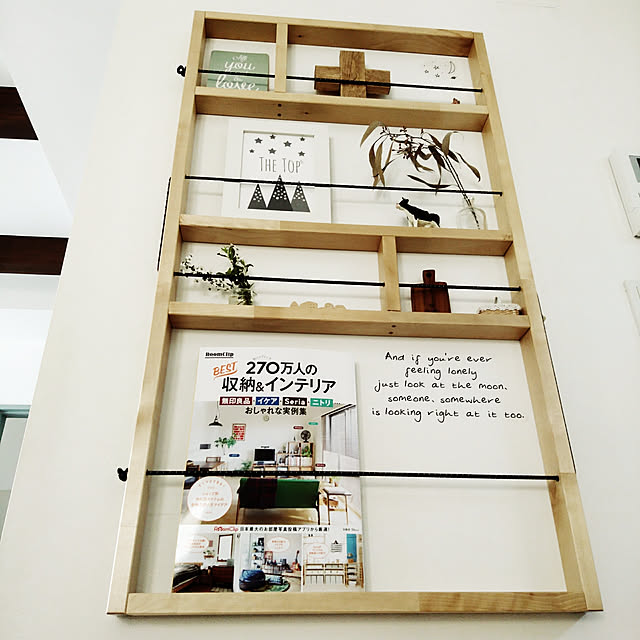 you
love
THE TOP
RoomClip
BEST
270万人の
収納&インテリア
無印良品・イケア・Seria・ニトリ
おしゃれな実例集
RoomClip 日本最大のお部屋写真投稿アプリから厳選!
And if you're ever
feeling lonely
just look at the moon.
someone, somewhere
is looking right at it too.